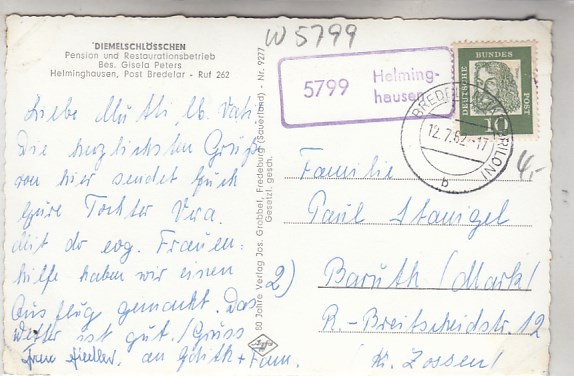 W 5799
"DIEMELSCHLÖSSCHEN
Pension und Restaurationsbetrieb
Bes. Gisela Peters
Helminghausen, Post Bredelar - Ruf 262
5799 Helming-
hausen
DEUTSCHE BUNDES POST
10
BREDELAR (BRILON)
12.7.62.-17
b
4,-
Liebe Mutti, lb. Vati,
Die herzlichsten Grüße
von hier sendet Euch
Eure Tochter Vera.
Mit der evg. Frauen-
hilfe haben wir einen
Ausflug gemacht. Das
Wetter ist gut. Gruss
Frau an + Fam.
80 Jahre Verlag Jos. Grobbel, Fredeburg (Sauerland) - Nr. 9277
Gesetzl. gesch.
Familie
Paul Stanigel
2) Baruth (Mark)
R.-Breitscheidstr. 12
Kr. Zossen